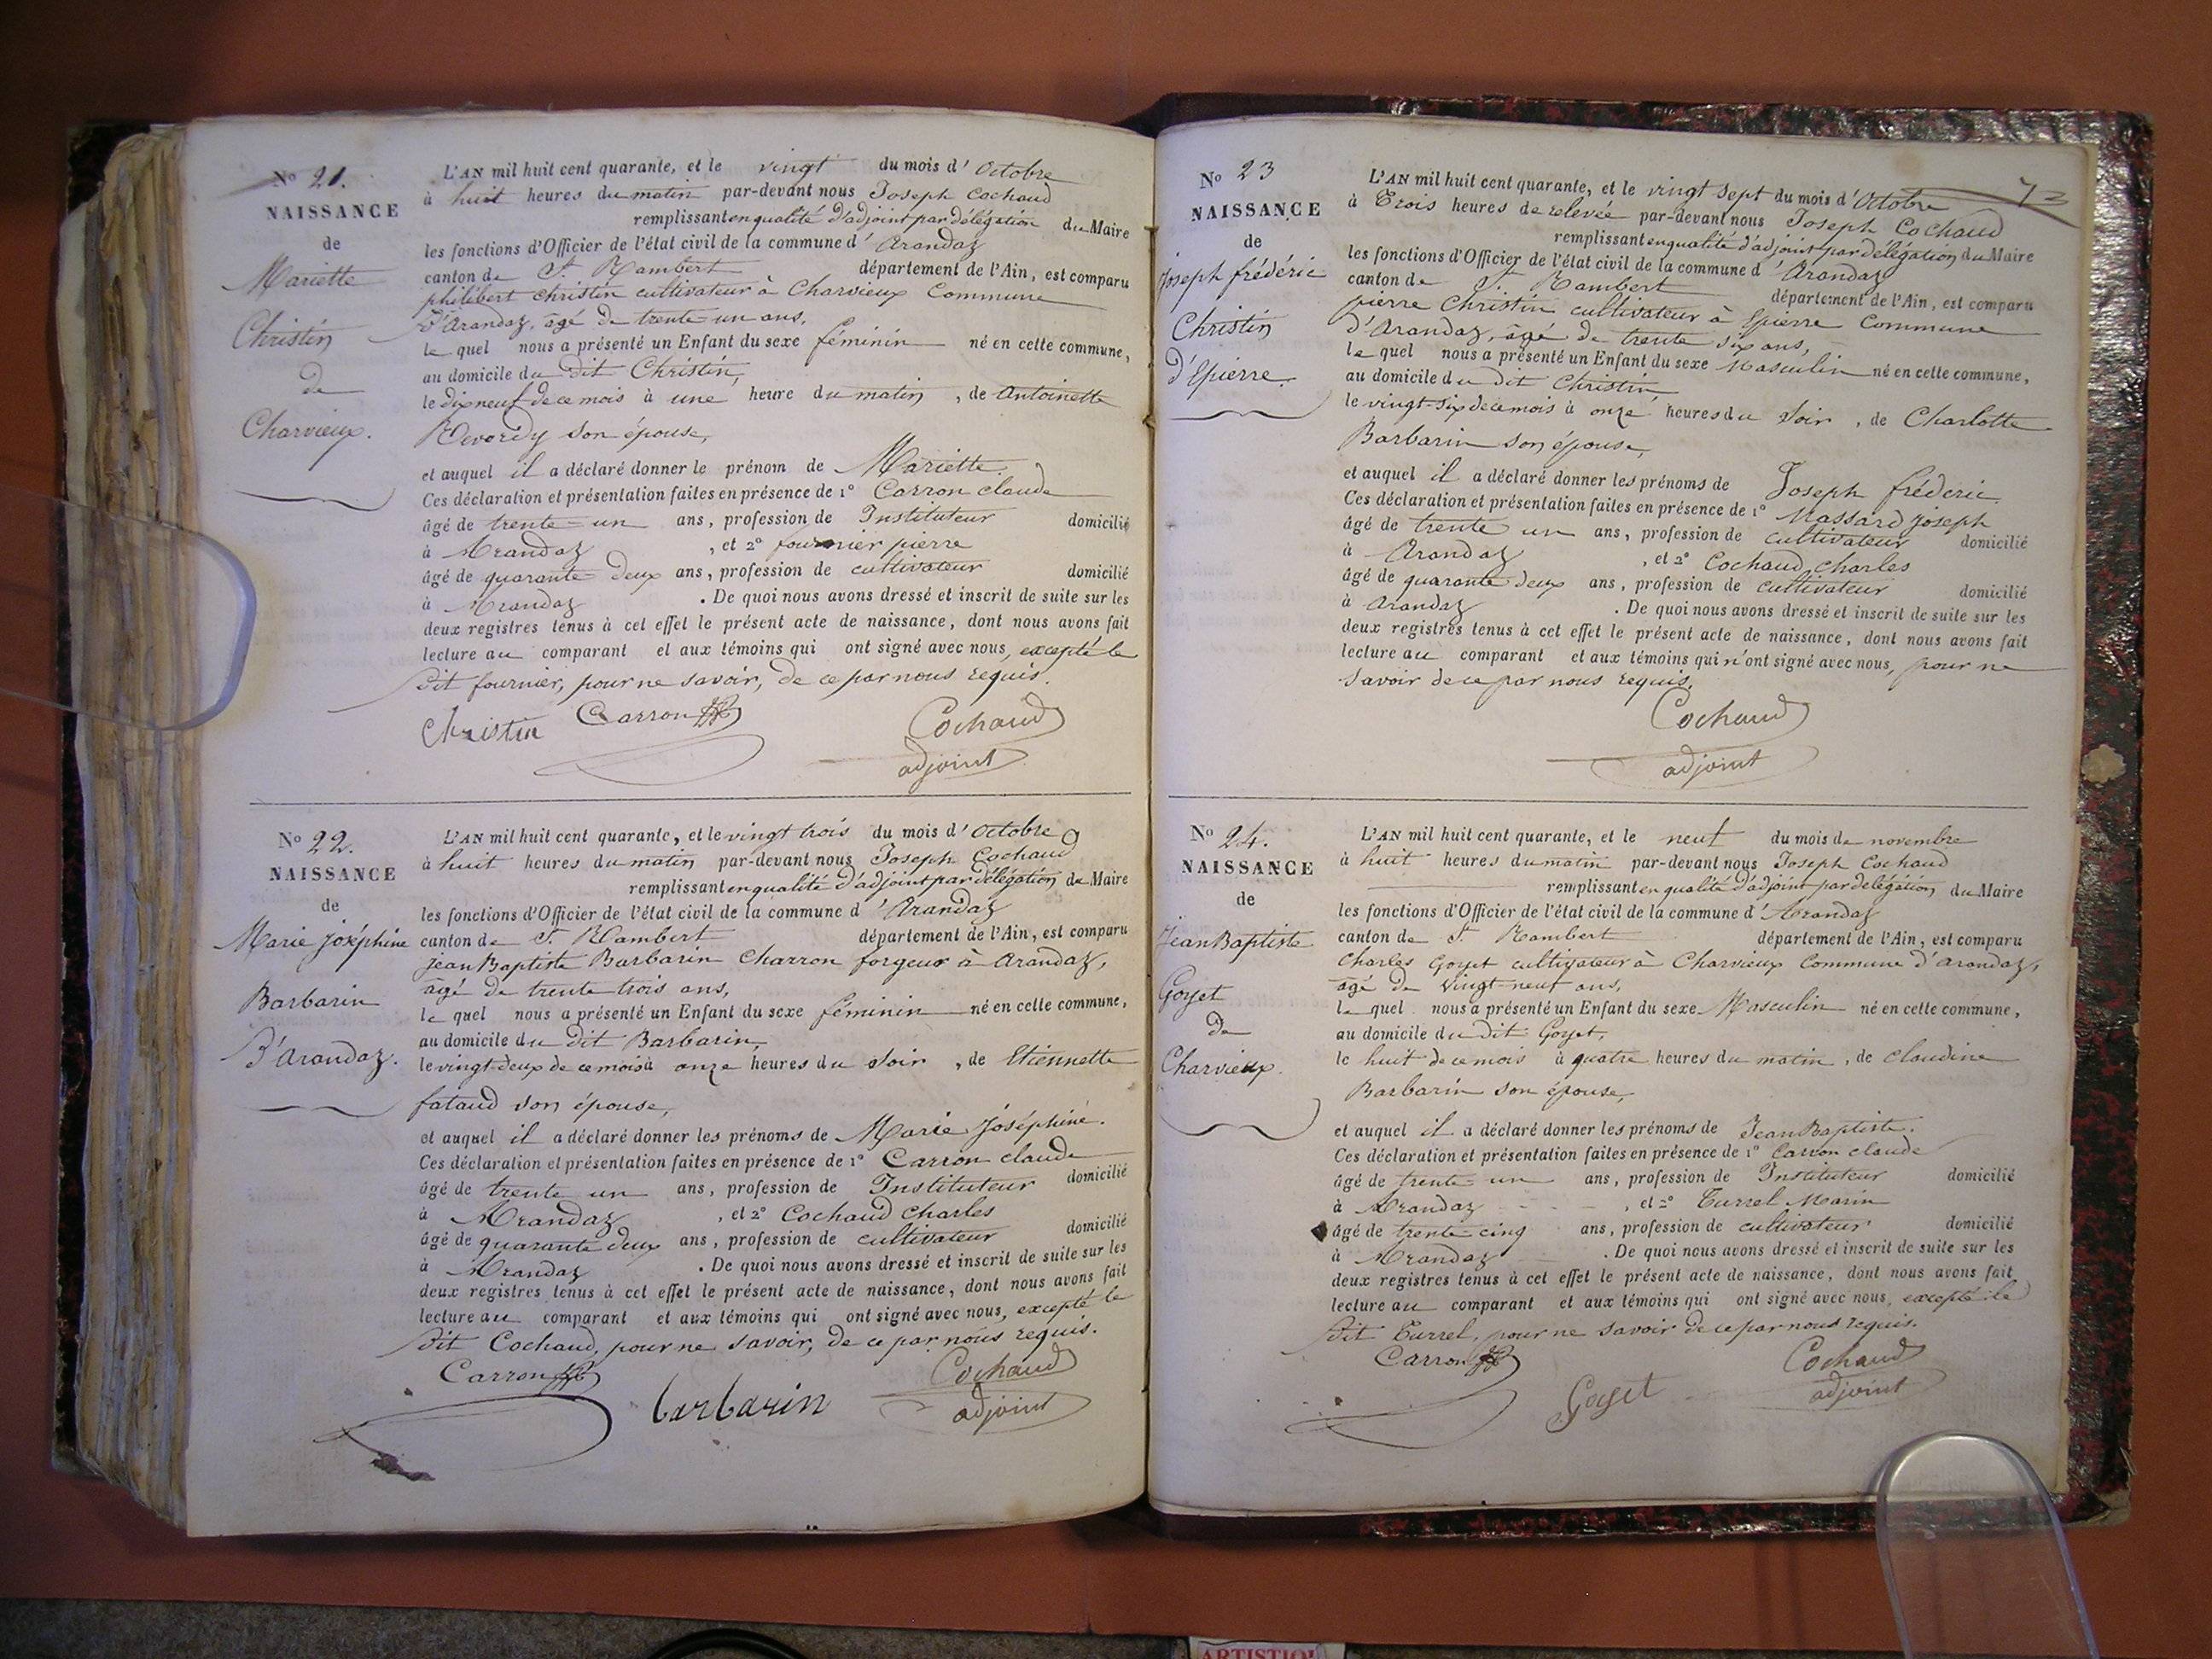 No 21.
NAISSANCE
de
Mariette
Christin
de
Charvieux.
L'AN mil huit cent quarante, et le vingt du mois d'Octobre
à huit heures du matin par-devant nous Joseph Cochaud
remplissant en qualité d'adjoint par délégation du Maire
les fonctions d'Officier de l'état civil de la commune d'Arandaz
canton de St. Rambert département de l'Ain, est comparu
philibert Christin cultivateur à Charvieux Commune
d'Arandaz, âgé de trente-un ans,
le quel nous a présenté un Enfant du sexe féminin né en cette commune,
au domicile du dit Christin,
le dix neuf de ce mois à une heure du matin, de Antoinette
Revordy son épouse,
et auquel il a déclaré donner le prénom de Mariette.
Ces déclaration et présentation faites en présence de 1° Carron claude
âgé de trente-un ans, profession de Instituteur domicilié
à Arandaz, et 2° fournier pierre
âgé de quarante deux ans, profession de cultivateur domicilié
à Arandaz. De quoi nous avons dressé et inscrit de suite sur les
deux registres tenus à cet effet le présent acte de naissance, dont nous avons fait
lecture au comparant et aux témoins qui ont signé avec nous, excepté le
dit fournier, pour ne savoir, de ce par nous requis.
Christin Carron Cochaud
adjoint
No 22.
NAISSANCE
de
Marie joséphine
Barbarin
D'Arandaz.
L'AN mil huit cent quarante, et le vingt trois du mois d'Octobre
à huit heures du matin par-devant nous Joseph Cochaud
remplissant en qualité d'adjoint par délégation du Maire
les fonctions d'Officier de l'état civil de la commune d'Arandaz
canton de St. Rambert département de l'Ain, est comparu
jean Baptiste Barbarin Charron forgeur à Arandaz,
agé de trente trois ans,
le quel nous a présenté un Enfant du sexe féminin né en cette commune,
au domicile du dit Barbarin,
le vingt-deux de ce mois à onze heures du soir, de Etiennette
fataud son épouse,
et auquel il a déclaré donner les prénoms de Marie Joséphine.
Ces déclaration et présentation faites en présence de 1° Carron claude
âgé de trente un ans, profession de Instituteur domicilié
à Arandaz, et 2° Cochaud Charles
âgé de quarante deux ans, profession de cultivateur domicilié
à Arandaz. De quoi nous avons dressé et inscrit de suite sur les
deux registres tenus à cet effet le présent acte de naissance, dont nous avons fait
lecture au comparant et aux témoins qui ont signé avec nous, excepté le
dit Cochaud, pour ne savoir, de ce par nous requis.
Carron barbarin Cochaud
adjoint
73
No 23
NAISSANCE
de
joseph frédéric
Christin
d'Epierre.
L'AN mil huit cent quarante, et le vingt sept du mois d'Octobre
à Trois heures de relevée par-devant nous Joseph Cochaud
remplissant en qualité d'adjoint par délégation du Maire
les fonctions d'Officier de l'état civil de la commune d'Arandaz
canton de St. Rambert département de l'Ain, est comparu
pierre Christin cultivateur à Epierre Commune
d'Arandaz, âgé de trente six ans,
le quel nous a présenté un Enfant du sexe Masculin né en cette commune,
au domicile du dit Christin,
le vingt-six de ce mois à onze heures du soir, de Charlotte
Barbarin son épouse,
et auquel il a déclaré donner les prénoms de Joseph frédéric.
Ces déclaration et présentation faites en présence de 1° Massard joseph
âgé de trente un ans, profession de cultivateur domicilié
à Arandaz, et 2° Cochaud Charles
âgé de quarante deux ans, profession de cultivateur domicilié
à Arandaz. De quoi nous avons dressé et inscrit de suite sur les
deux registres tenus à cet effet le présent acte de naissance, dont nous avons fait
lecture au comparant et aux témoins qui n'ont signé avec nous, pour ne
savoir de ce par nous requis.
Cochaud
adjoint
No 24.
NAISSANCE
de
Jean Baptiste
Goyet
de
Charvieux.
L'AN mil huit cent quarante, et le neuf du mois de novembre
à huit heures du matin par-devant nous Joseph Cochaud
remplissant en qualité d'adjoint par délégation du Maire
les fonctions d'Officier de l'état civil de la commune d'Arandaz
canton de St. Rambert département de l'Ain, est comparu
Charles Goyet cultivateur à Charvieux Commune d'arandaz,
agé de vingt-neuf ans,
le quel nous a présenté un Enfant du sexe Masculin né en cette commune,
au domicile du dit Goyet,
le huit de ce mois à quatre heures du matin, de claudine
Barbarin son épouse,
et auquel il a déclaré donner les prénoms de Jean Baptiste.
Ces déclaration et présentation faites en présence de 1° Carron claude
âgé de trente un ans, profession de Instituteur domicilié
à Arandaz, et 2° Turrel Marin
âgé de trente cinq ans, profession de cultivateur domicilié
à Arandaz. De quoi nous avons dressé et inscrit de suite sur les
deux registres tenus à cet effet le présent acte de naissance, dont nous avons fait
lecture au comparant et aux témoins qui ont signé avec nous, excepté le
dit Turrel, pour ne savoir de ce par nous requis.
Carron Goyet Cochaud
adjoint